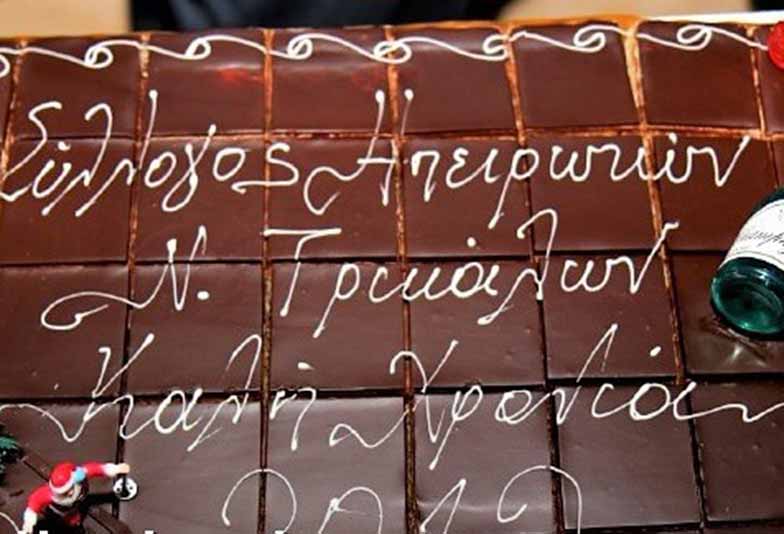 Σύλλογος Ηπειρωτών
Ν. Τρικάλων
Καλή Χρονιά